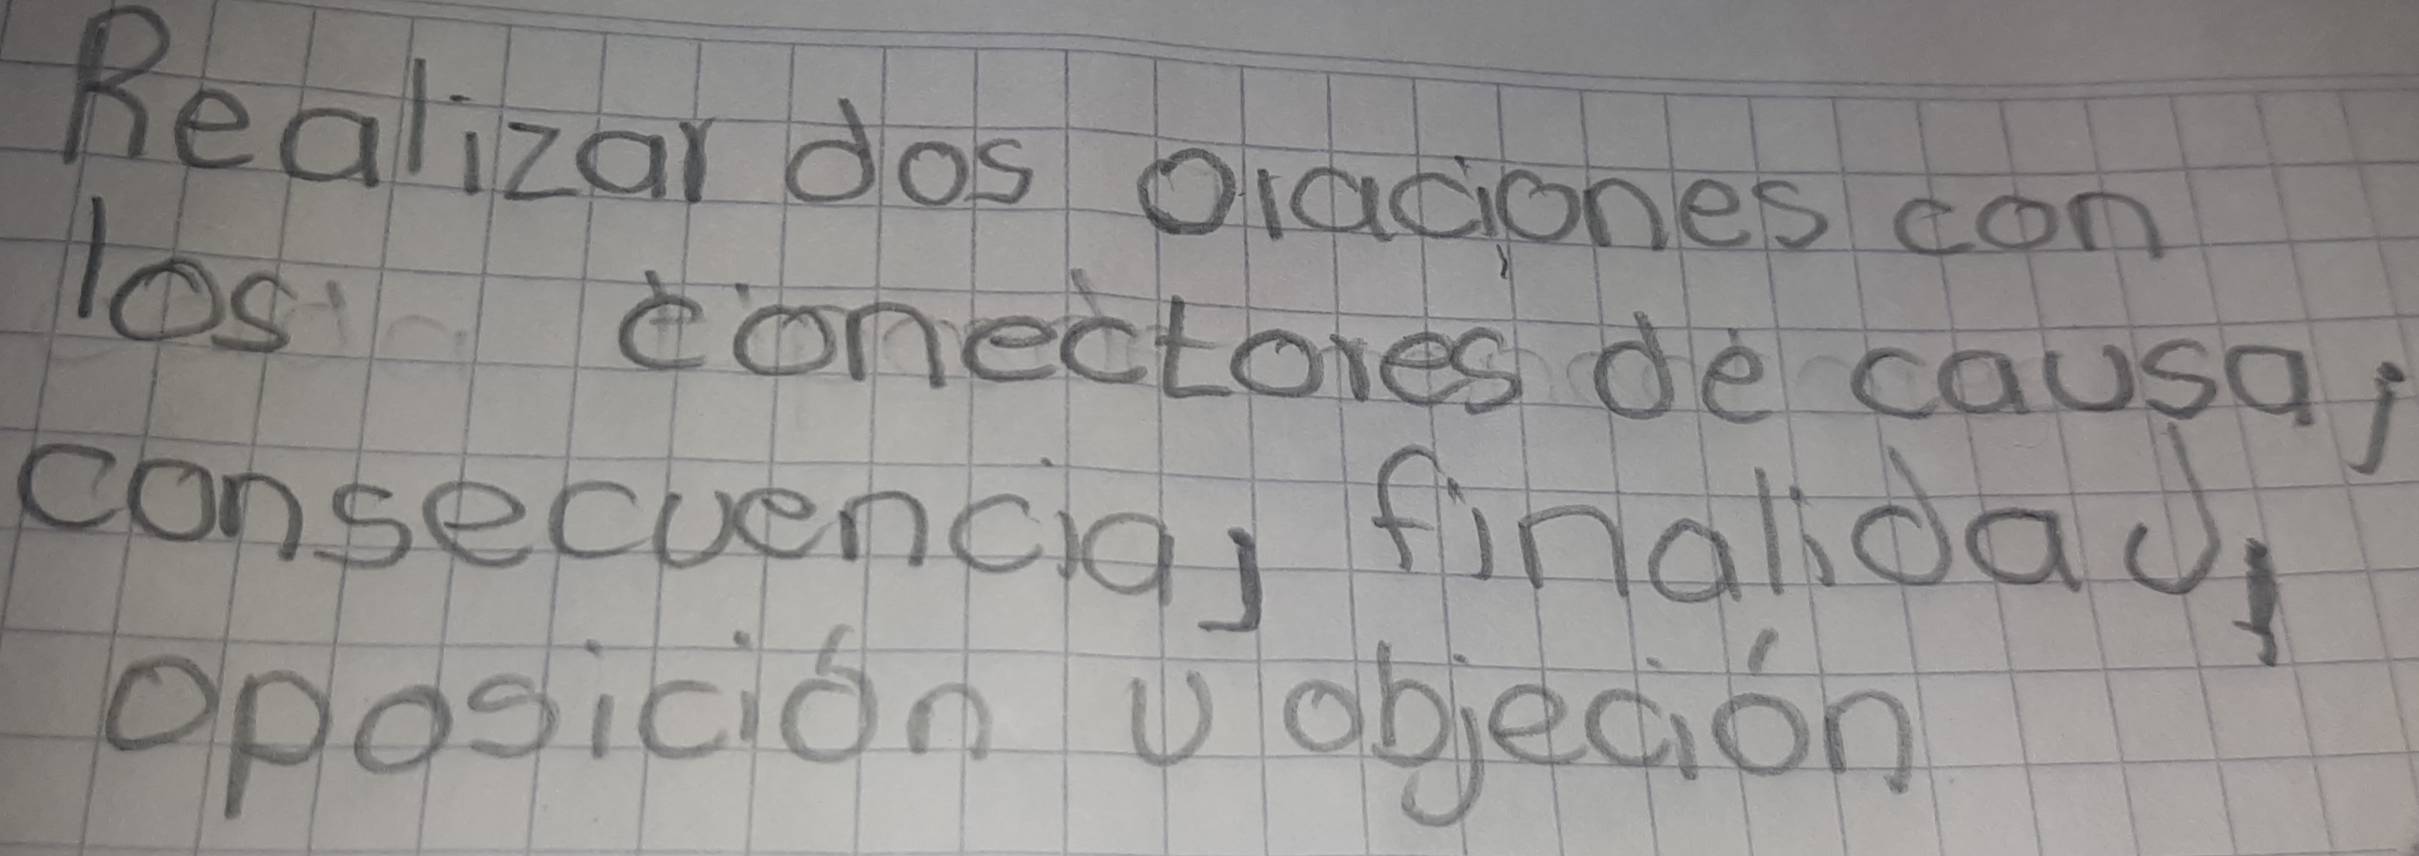 Realizar dos oraciones con
los conectores de causa,
consecuencia, finalidad,
oposición u objeción